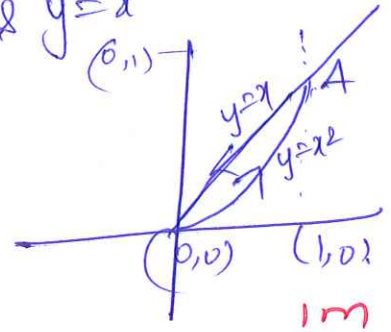 & y = x
(0,1)
A
y=x
y=x²
(0,0)
(1,0)
1m